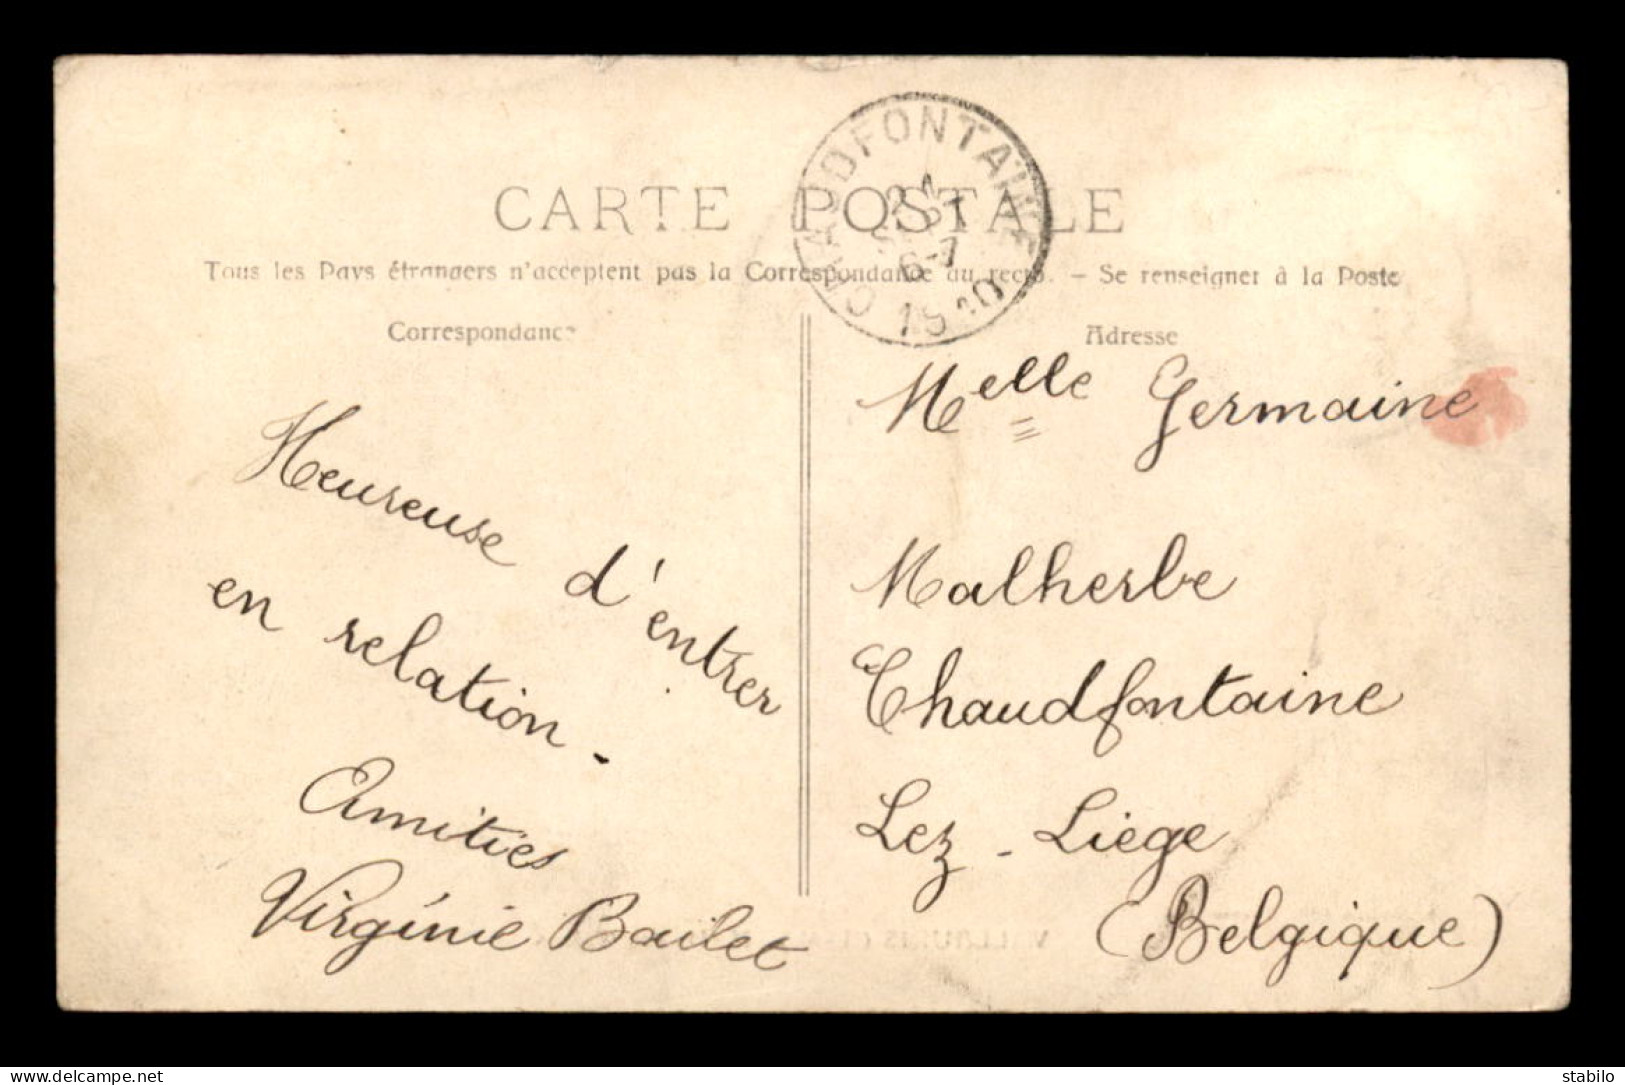 CHAUDFONTAINE
6-7
1910
CARTE POSTALE
Tous les Pays étrangers n'acceptent pas la Correspondance au recto. – Se renseigner à la Poste
Correspondance
Heureuse d'entrer
en relation.
Amitiés
Virginie Bailet
Adresse
Melle Germaine
Malherbe
Chaudfontaine
Lez-Liège
(Belgique)
https://www.delcampe.net
stabilo